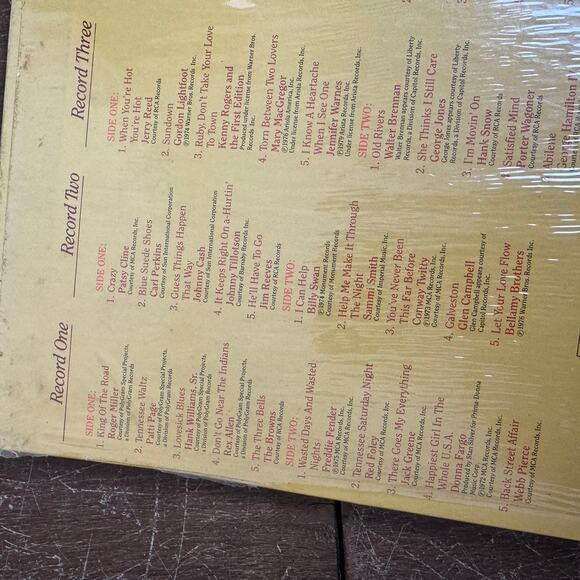 Record One
SIDE ONE:
1. King Of The Road
Roger Miller
Courtesy of PolyGram Special Projects,
a Division of PolyGram Records
2. Tennessee Waltz
Patti Page
Courtesy of PolyGram Special Projects,
a Division of PolyGram Records
3. Lovesick Blues
Hank Williams, Sr.
Courtesy of PolyGram Special Projects,
a Division of PolyGram Records
4. Don't Go Near The Indians
Rex Allen
Courtesy of PolyGram Special Projects,
a Division of PolyGram Records
5. The Three Bells
The Browns
Courtesy of RCA Records
SIDE TWO:
1. Wasted Days And Wasted
Nights
Freddie Fender
℗1975 MCA Records, Inc.
Courtesy of MCA Records, Inc.
2. Tennessee Saturday Night
Red Foley
Courtesy of MCA Records, Inc.
3. There Goes My Everything
Jack Greene
Courtesy of MCA Records, Inc.
4. Happiest Girl In The
Whole U.S.A.
Donna Fargo
Produced by Stan Silver for Prima Donna
Music Corp.
℗1972 MCA Records, Inc.
Courtesy of MCA Records, Inc.
5. Back Street Affair
Webb Pierce
Courtesy of MCA Records, Inc.
Record Two
SIDE ONE:
1. Crazy
Patsy Cline
Courtesy of MCA Records, Inc.
2. Blue Suede Shoes
Carl Perkins
Courtesy of Sun International Corporation
3. Guess Things Happen
That Way
Johnny Cash
Courtesy of Sun International Corporation
4. It Keeps Right On a-Hurtin'
Johnny Tillotson
Courtesy of Barnaby Records, Inc.
5. He'll Have To Go
Jim Reeves
Courtesy of RCA Records
SIDE TWO:
1. I Can Help
Billy Swan
℗1974 Monument Records
Courtesy of Monument Records
2. Help Me Make It Through
The Night
Sammi Smith
Courtesy of Imperial Music, Inc.
3. You've Never Been
This Far Before
Conway Twitty
℗1973 MCA Records, Inc.
Courtesy of MCA Records, Inc.
4. Galveston
Glen Campbell
Glen Campbell appears courtesy of
Capitol Records, Inc.
5. Let Your Love Flow
Bellamy Brothers
℗1976 Warner Bros. Records, Inc.
Record Three
SIDE ONE:
1. When You're Hot
You're Hot
Jerry Reed
Courtesy of RCA Records
2. Sundown
Gordon Lightfoot
℗1974 Warner Bros. Records, Inc.
3. Ruby, Don't Take Your Love
To Town
Kenny Rogers and
the First Edition
Produced under license from Warner Bros.
Records, Inc.
4. Torn Between Two Lovers
Mary MacGregor
℗1976 Ariola America, Inc.
Under license from Arista Records, Inc.
5. I Know A Heartache
When I See One
Jennifer Warnes
℗1979 Arista Records, Inc.
Under license from Arista Records, Inc.
SIDE TWO:
1. Old Rivers
Walter Brennan
Walter Brennan appears courtesy of Liberty
Records, a Division of Capitol Records, Inc.
2. She Thinks I Still Care
George Jones
George Jones appears courtesy of Liberty
Records, a Division of Capitol Records, Inc.
3. I'm Movin' On
Hank Snow
Courtesy of RCA Records
4. Satisfied Mind
Porter Wagoner
Courtesy of RCA Records
Abilene
George Hamilton
Courtesy of RCA